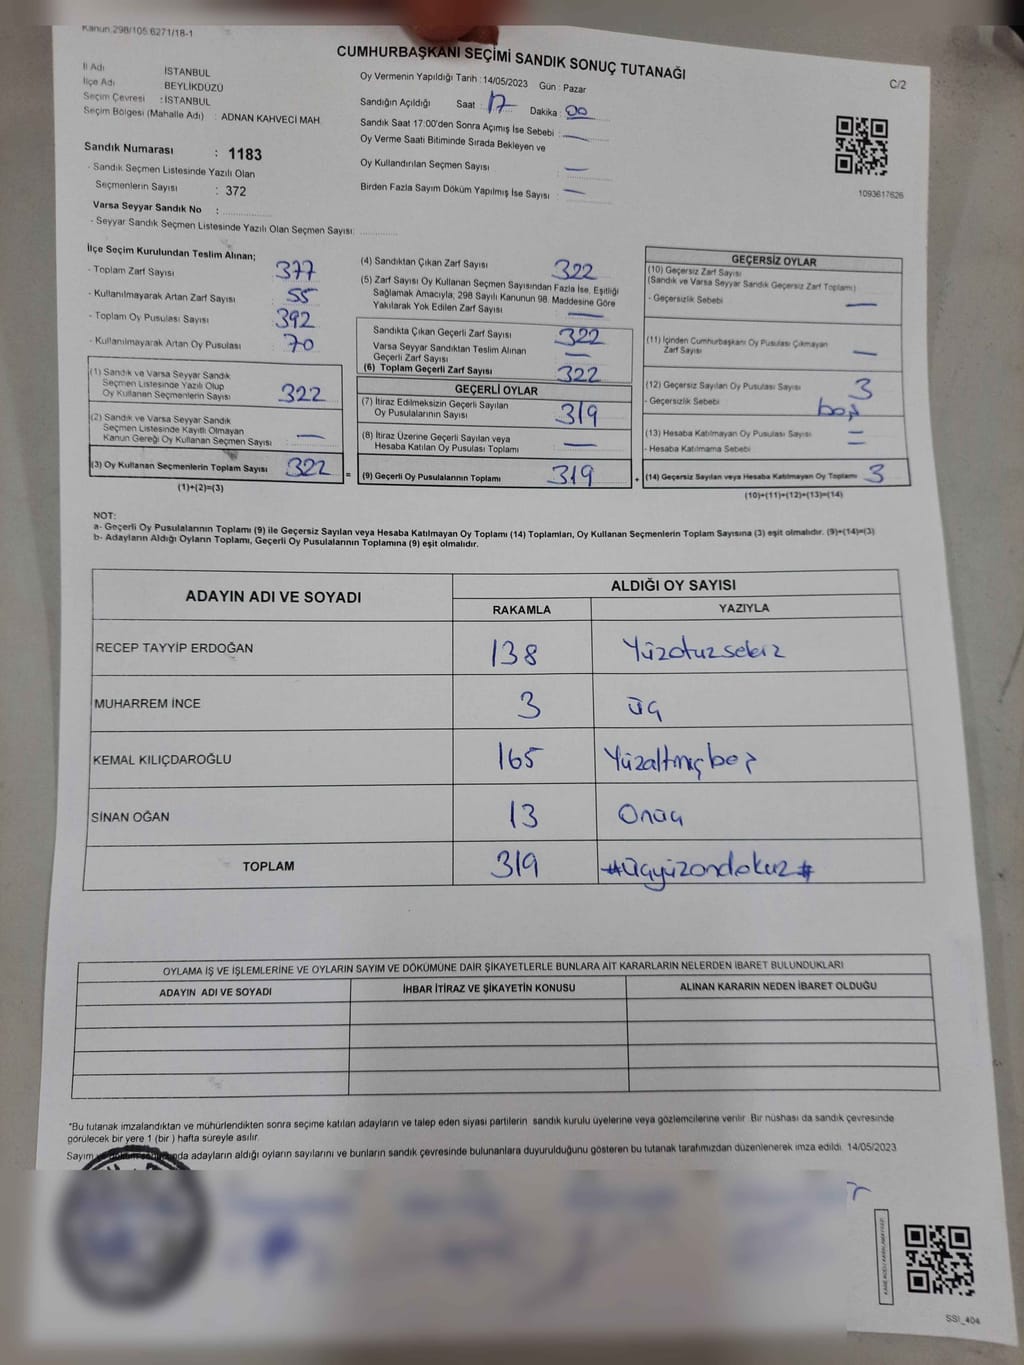 Kanun.298/105.6271/18-1
CUMHURBAŞKANI SEÇİMİ SANDIK SONUÇ TUTANAĞI
C/2
İl Adı İSTANBUL
İlçe Adı BEYLİKDÜZÜ
Seçim Çevresi : İSTANBUL
Seçim Bölgesi (Mahalle Adı) : ADNAN KAHVECİ MAH.
Sandık Numarası : 1183
- Sandık Seçmen Listesinde Yazılı Olan
Seçmenlerin Sayısı : 372
Varsa Seyyar Sandık No :
- Seyyar Sandık Seçmen Listesinde Yazılı Olan Seçmen Sayısı:
Oy Vermenin Yapıldığı Tarih : 14/05/2023 Gün : Pazar
Sandığın Açıldığı Saat : 17 Dakika : 00
Sandık Saat 17:00'den Sonra Açımış İse Sebebi : —
Oy Verme Saati Bitiminde Sırada Bekleyen ve
Oy Kullandırılan Seçmen Sayısı —
Birden Fazla Sayım Döküm Yapılmış İse Sayısı : —
1093617626
İlçe Seçim Kurulundan Teslim Alınan;
- Toplam Zarf Sayısı 377
- Kullanılmayarak Artan Zarf Sayısı 55
- Toplam Oy Pusulası Sayısı 392
- Kullanılmayarak Artan Oy Pusulası 70
(1) Sandık ve Varsa Seyyar Sandık
Seçmen Listesinde Yazılı Olup
Oy Kullanan Seçmenlerin Sayısı 322
(2) Sandık ve Varsa Seyyar Sandık
Seçmen Listesinde Kayıtlı Olmayan
Kanun Gereği Oy Kullanan Seçmen Sayısı —
(3) Oy Kullanan Seçmenlerin Toplam Sayısı 322 =
(1)+(2)=(3)
(4) Sandıktan Çıkan Zarf Sayısı 322
(5) Zarf Sayısı Oy Kullanan Seçmen Sayısından Fazla İse, Eşitliği
Sağlamak Amacıyla, 298 Sayılı Kanunun 98. Maddesine Göre
Yakılarak Yok Edilen Zarf Sayısı —
Sandıkta Çıkan Geçerli Zarf Sayısı 322
Varsa Seyyar Sandıktan Teslim Alınan
Geçerli Zarf Sayısı —
(6) Toplam Geçerli Zarf Sayısı 322
GEÇERLİ OYLAR
(7) İtiraz Edilmeksizin Geçerli Sayılan
Oy Pusulalarının Sayısı 319
(8) İtiraz Üzerine Geçerli Sayılan veya
Hesaba Katılan Oy Pusulası Toplamı —
(9) Geçerli Oy Pusulalarının Toplamı 319 +
GEÇERSİZ OYLAR
(10) Geçersiz Zarf Sayısı
(Sandık ve Varsa Seyyar Sandık Geçersiz Zarf Toplamı)
- Geçersizlik Sebebi —
(11) İçinden Cumhurbaşkanı Oy Pusulası Çıkmayan
Zarf Sayısı —
(12) Geçersiz Sayılan Oy Pusulası Sayısı 3
- Geçersizlik Sebebi boş
(13) Hesaba Katılmayan Oy Pusulası Sayısı —
- Hesaba Katılmama Sebebi —
(14) Geçersiz Sayılan veya Hesaba Katılmayan Oy Toplamı 3
(10)+(11)+(12)+(13)=(14)
NOT:
a- Geçerli Oy Pusulalarının Toplamı (9) ile Geçersiz Sayılan veya Hesaba Katılmayan Oy Toplamı (14) Toplamları, Oy Kullanan Seçmenlerin Toplam Sayısına (3) eşit olmalıdır. (9)+(14)=(3)
b- Adayların Aldığı Oyların Toplamı, Geçerli Oy Pusulalarının Toplamına (9) eşit olmalıdır.
ADAYIN ADI VE SOYADI ALDIĞI OY SAYISI
RAKAMLA YAZIYLA
RECEP TAYYİP ERDOĞAN 138 Yüzotuzsekiz
MUHARREM İNCE 3 üç
KEMAL KILIÇDAROĞLU 165 Yüzaltmışbeş
SİNAN OĞAN 13 Onüç
TOPLAM 319 #üçyüzondokuz#
OYLAMA İŞ VE İŞLEMLERİNE VE OYLARIN SAYIM VE DÖKÜMÜNE DAİR ŞİKAYETLERLE BUNLARA AİT KARARLARIN NELERDEN İBARET BULUNDUKLARI
ADAYIN ADI VE SOYADI İHBAR İTİRAZ VE ŞİKAYETİN KONUSU ALINAN KARARIN NEDEN İBARET OLDUĞU
"Bu tutanak imzalandıktan ve mühürlendikten sonra seçime katılan adayların ve talep eden siyasi partilerin sandık kurulu üyelerine veya gözlemcilerine verilir. Bir nüshası da sandık çevresinde
görülecek bir yere 1 (bir ) hafta süreyle asılır.
Sayım adayların aldığı oyların sayılarını ve bunların sandık çevresinde bulunanlara duyurulduğunu gösteren bu tutanak tarafımızdan düzenlenerek imza edildi. 14/05/2023
SSI_404